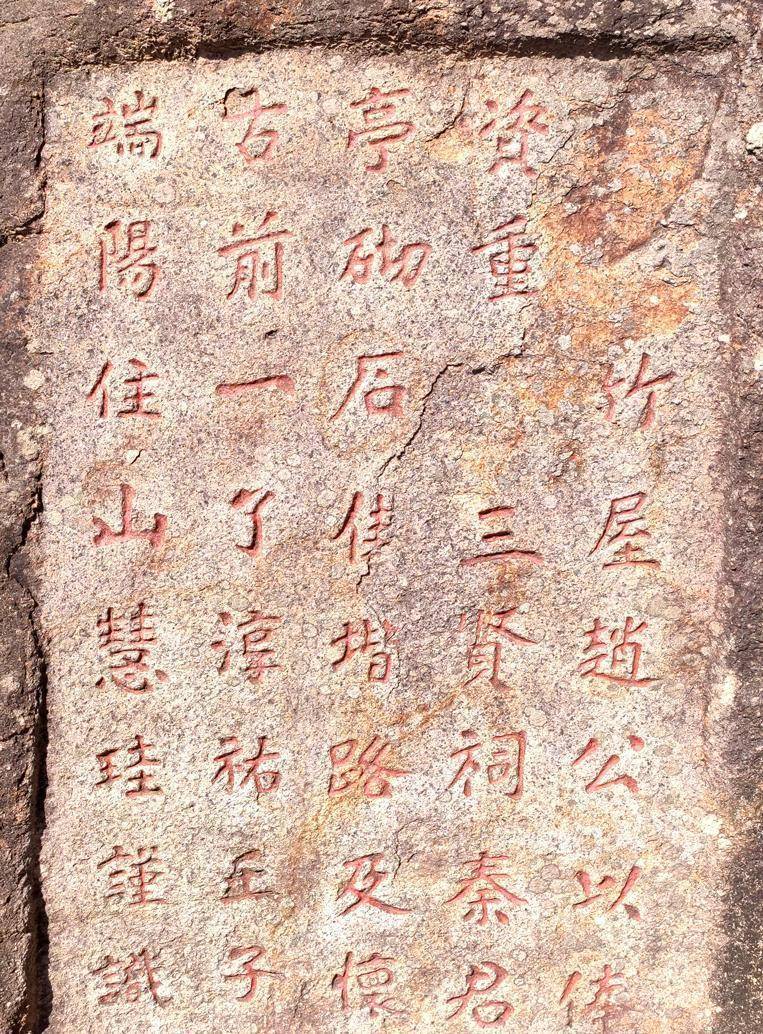 竹屋趙公以俸
資重　三賢祠秦君
亭砌石佳堦路及懷
古前一了淳祐壬子
端陽住山慧珪謹識